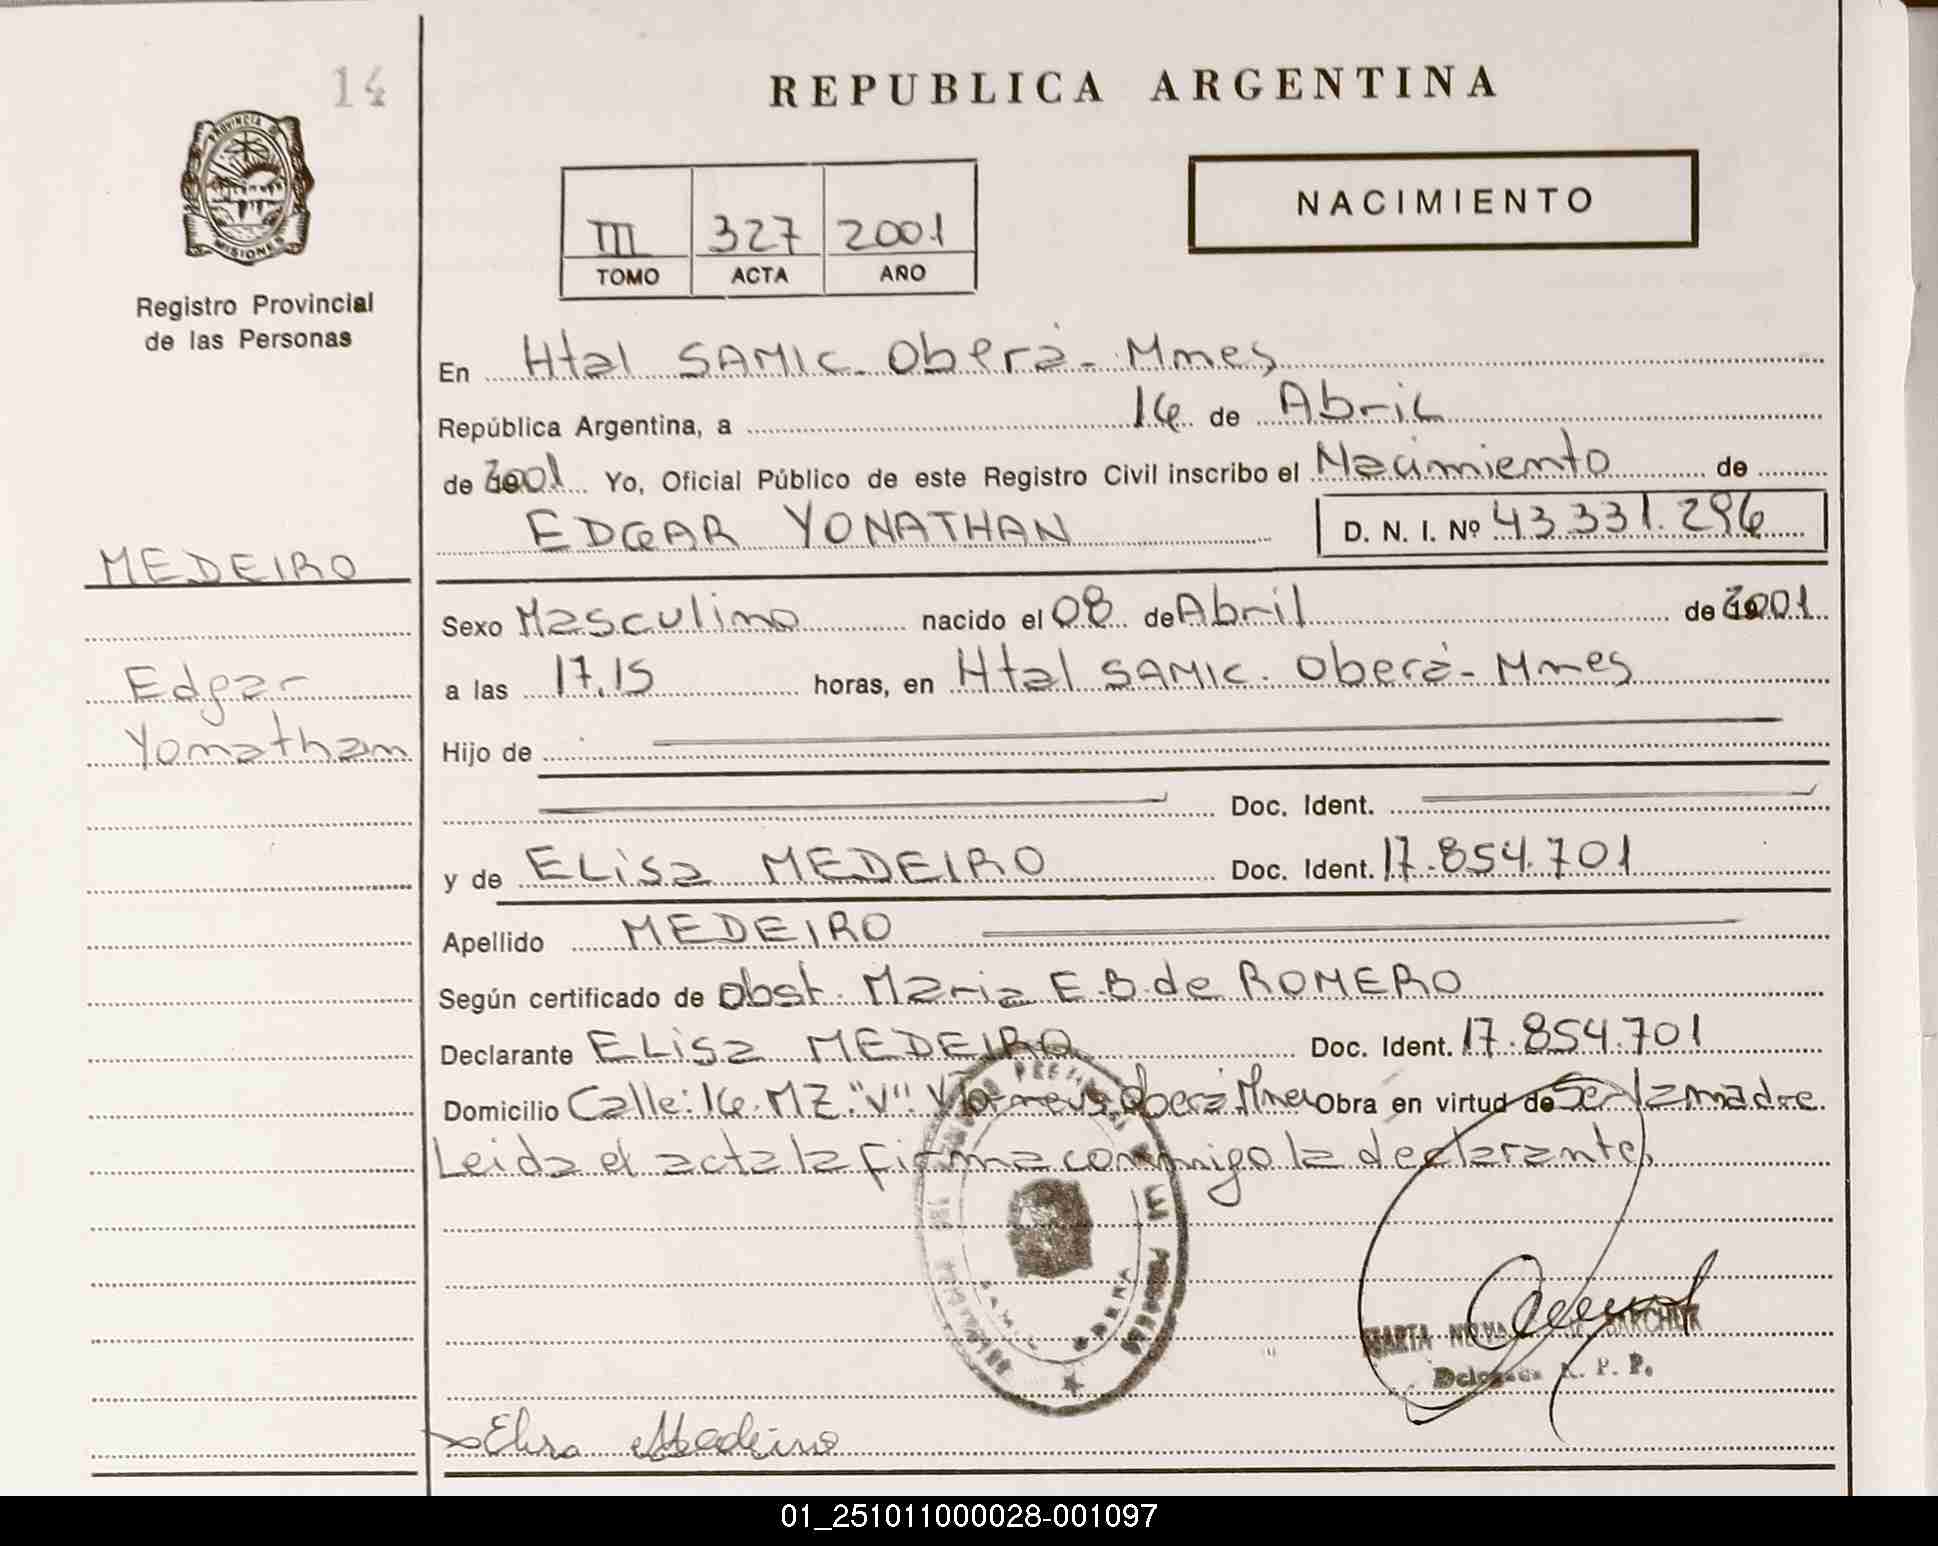 14
REPUBLICA ARGENTINA
PROVINCIA DE
MISIONES
Registro Provincial
de las Personas
III 327 2001
TOMO ACTA AÑO
NACIMIENTO
En Htal SAMIC. Oberá - Mnes
República Argentina, a 16 de Abril
de 2001 Yo, Oficial Público de este Registro Civil inscribo el Nacimiento de
EDGAR YONATHAN D. N. I. Nº 43.331.296
MEDEIRO
Sexo Masculino nacido el 08 de Abril de 2001
Edgar
a las 17,15 horas, en Htal SAMIC. Oberá - Mnes
Yonathan
Hijo de
Doc. Ident.
y de ELisa MEDEIRO Doc. Ident. 17.854.701
Apellido MEDEIRO
Según certificado de obst. Maria E.B. de ROMERO
Declarante ELisa MEDEIRO Doc. Ident. 17.854.701
Domicilio Calle: 16. MZ. "V". Oberá Mnes Obra en virtud de Ser la madre
Leida el acta la firma conmigo la declarante,
OBERA
MARTA BARCHUK
Delegada R. P. P.
Elisa Medeiro
01_251011000028-001097